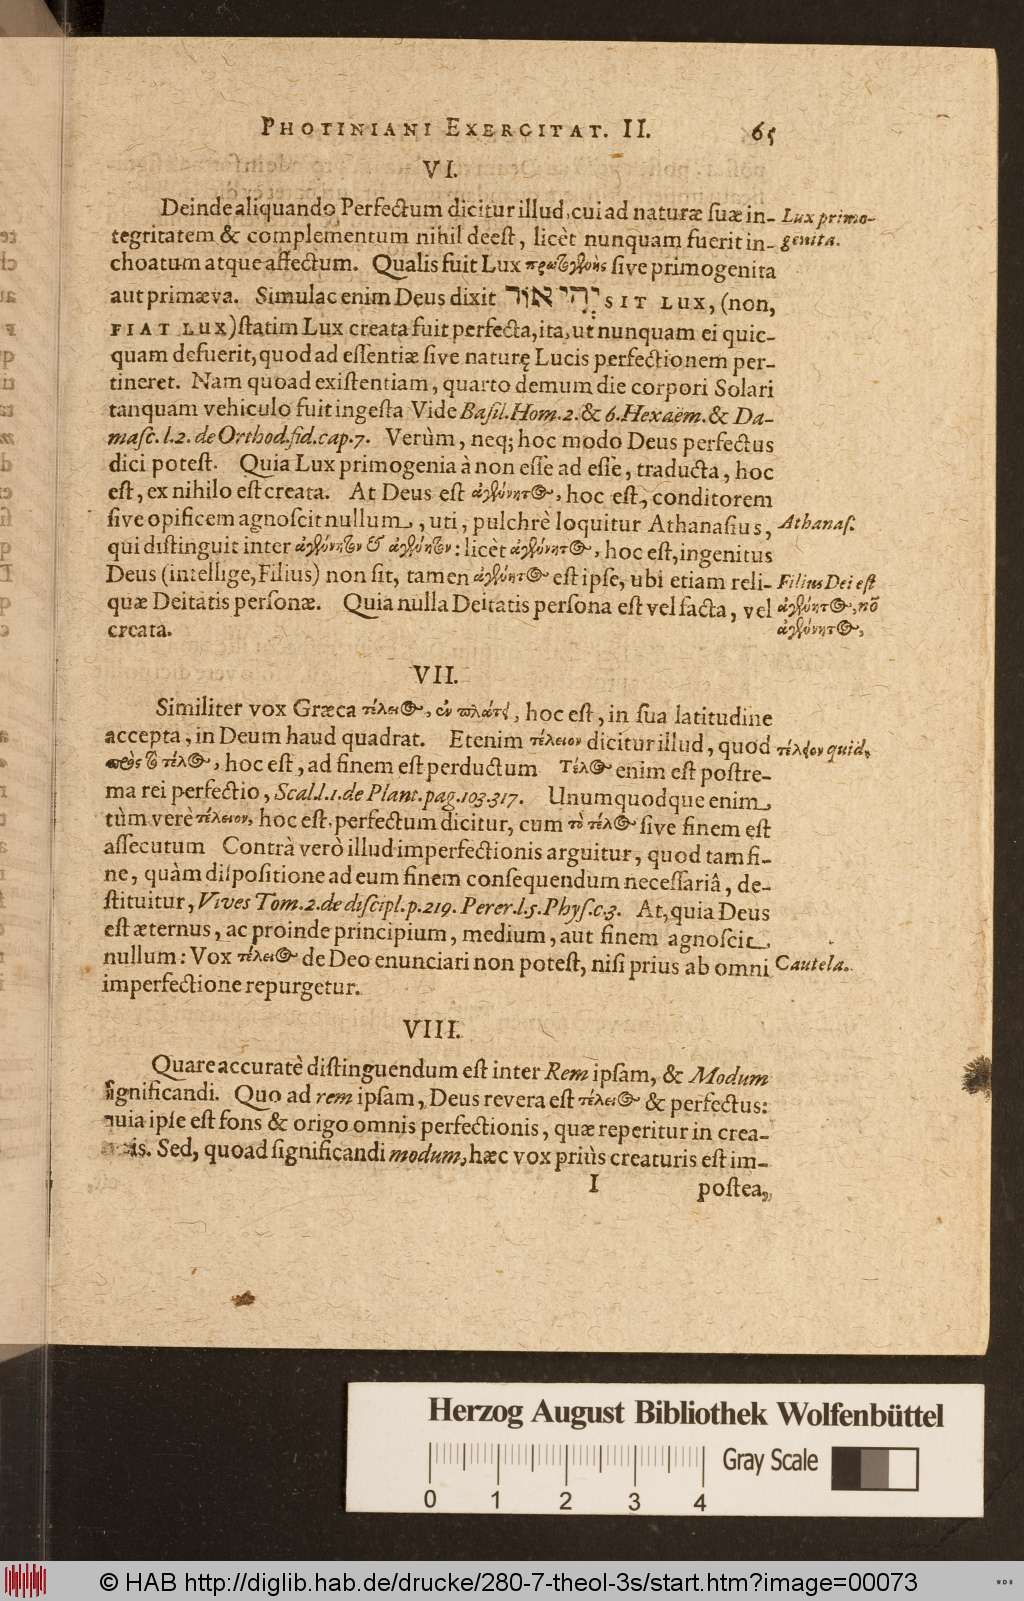 PHOTINIANI EXERCITAT. II. 65
VI.
Deinde aliquando Perfectum dicitur illud, cui ad naturæ suæ in-
tegritatem & complementum nihil deest, licèt nunquam fuerit in-
choatum atque affectum. Qualis fuit Lux πρωτογενὴς sive primogenita
aut primæva. Simulac enim Deus dixit יְהִי אוֹר SIT LUX, (non,
FIAT LUX) statim Lux creata fuit perfecta, ita, ut nunquam ei quic-
quam defuerit, quod ad essentiæ sive naturę Lucis perfectionem per-
tineret. Nam quoad existentiam, quarto demum die corpori Solari
tanquam vehiculo fuit ingesta Vide Basil. Hom. 2. & 6. Hexaëm. & Da-
masc. l. 2. de Orthod. fid. cap. 7. Verùm, neq; hoc modo Deus perfectus
dici potest. Quia Lux primogenia à non esse ad esse, traducta, hoc
est, ex nihilo est creata. At Deus est ἀγένητος, hoc est, conditorem
sive opificem agnoscit nullum, uti, pulchrè loquitur Athanasius,
qui distinguit inter ἀγέννητον & ἀγένητον: licèt ἀγέννητος, hoc est, ingenitus
Deus (intellige, Filius) non sit, tamen ἀγένητος est ipse, ubi etiam reli-
quæ Deitatis personæ. Quia nulla Deitatis persona est vel facta, vel
creata.
Lux primo-
genita.
Athanas.
Filius Dei est
ἀγένητος, nō
ἀγέννητος,
VII.
Similiter vox Græca τέλειος, ἐν πλάτει, hoc est, in sua latitudine
accepta, in Deum haud quadrat. Etenim τέλειον dicitur illud, quod
πρὸς τὸ τέλος, hoc est, ad finem est perductum Τέλος enim est postre-
ma rei perfectio, Scal. l. 1. de Plant. pag. 103. 317. Unumquodque enim
tùm verè τέλειον, hoc est, perfectum dicitur, cum τὸ τέλος sive finem est
assecutum Contrà verò illud imperfectionis arguitur, quod tam fi-
ne, quàm dispositione ad eum finem consequendum necessariâ, de-
stituitur, Vives Tom. 2. de discipl. p. 219. Perer. l. 5. Phys. c. 3. At, quia Deus
est æternus, ac proinde principium, medium, aut finem agnoscit
nullum: Vox τέλειος de Deo enunciari non potest, nisi prius ab omni
imperfectione repurgetur.
τέλειον quid,
Cautela.
VIII.
Quare accuratè distinguendum est inter Rem ipsam, & Modum
significandi. Quo ad rem ipsam, Deus revera est τέλειος & perfectus:
quia ipse est fons & origo omnis perfectionis, quæ reperitur in crea-
is. Sed, quoad significandi modum, hæc vox priùs creaturis est im-
I postea,
Herzog August Bibliothek Wolfenbüttel
Gray Scale
0 1 2 3 4
© HAB http://diglib.hab.de/drucke/280-7-theol-3s/start.htm?image=00073